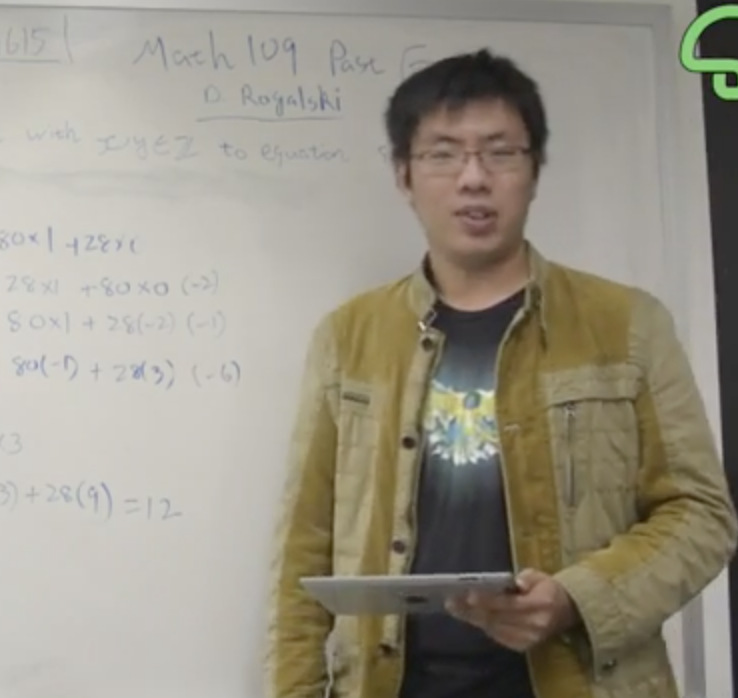 615
Math 109 Past
D. Rogalski
with x,y ∈ Z to equation
80x1 + 28x
28x1 + 80x0 (-2)
80x1 + 28(-2) (-1)
80(-1) + 28(3) (-6)
3
3) + 28(9) = 12